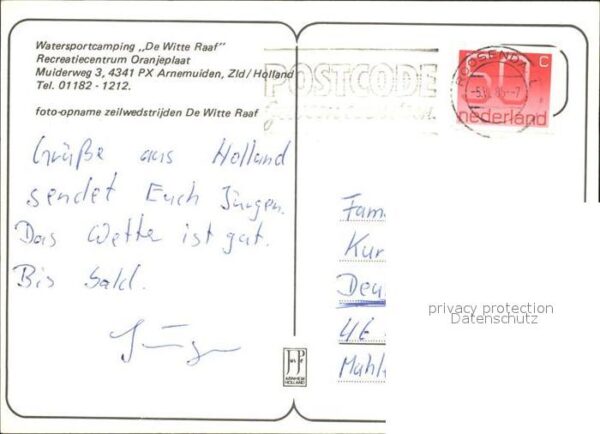 Watersportcamping „De Witte Raaf"
Recreatiecentrum Oranjeplaat
Muiderweg 3, 4341 PX Arnemuiden, Zld/Holland
Tel. 01182 - 1212.
foto-opname zeilwedstrijden De Witte Raaf
Grüße aus Holland
sendet Euch Jürgen.
Das Wetter ist gut.
Bis bald.
Jürgen
POSTCODE
ROOSENDAAL
50 C
nederland
Fam
Kur
Deu
46
Mühl
privacy protection
Datenschutz
JosPé
ARNHEM
HOLLAND